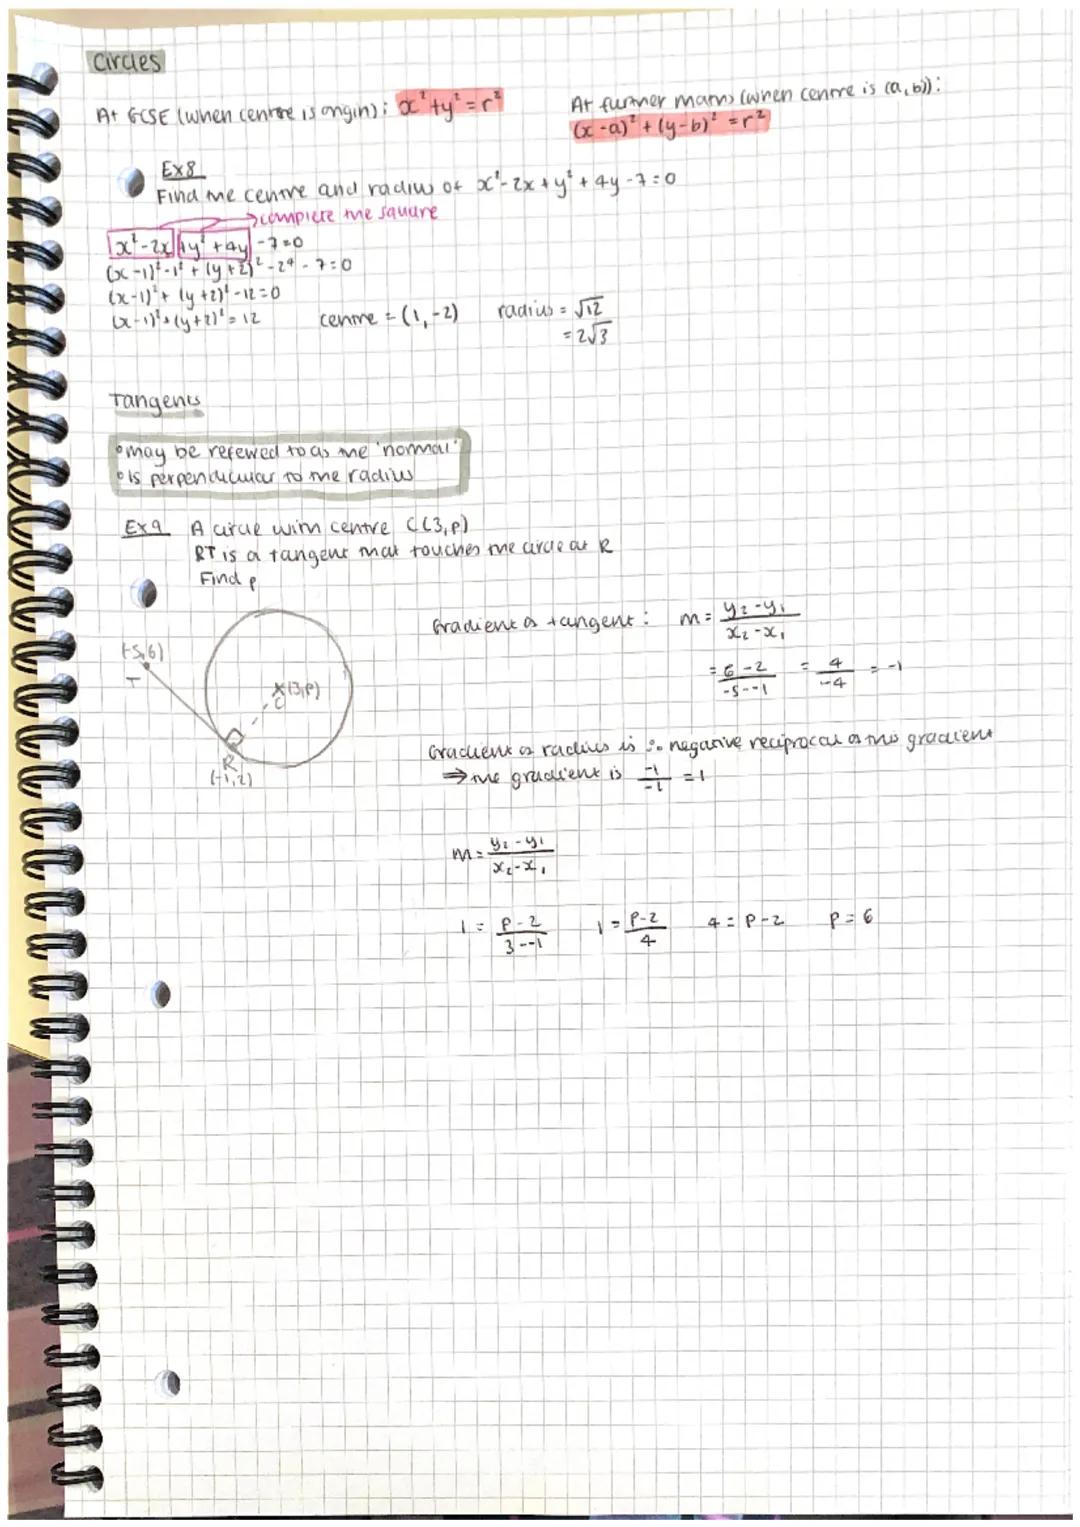 Circles
At GCSE (when centre is origin): x² + y² = r²
At further maths (when centre is (a, b)):
(x - a)² + (y - b)² = r²
Ex 8
Find the centre and radius of x² - 2x + y² + 4y - 7 = 0
→ complete the square
x² - 2x + y² + 4y - 7 = 0
(x - 1)² - 1² + (y + 2)² - 2² - 7 = 0
(x - 1)² + (y + 2)² - 12 = 0
(x - 1)² + (y + 2)² = 12
centre = (1, -2)
radius = √12
= 2√3
Tangents
• may be referred to as the 'normal'
• is perpendicular to the radius
Ex 9 A circle with centre C(3, p)
RT is a tangent that touches the circle at R
Find p
(-5, 6)
T
x (3, p)
C
R
(-1, 2)
Gradient of tangent: m = y₂ - y₁ / x₂ - x₁
= 6 - 2 / -5 - -1 = 4 / -4 = -1
Gradient of radius is ∴ negative reciprocal of this gradient
⇒ the gradient is -1 / -1 = 1
m = y₂ - y₁ / x₂ - x₁
1 = p - 2 / 3 - -1 1 = p - 2 / 4 4 = p - 2 p = 6